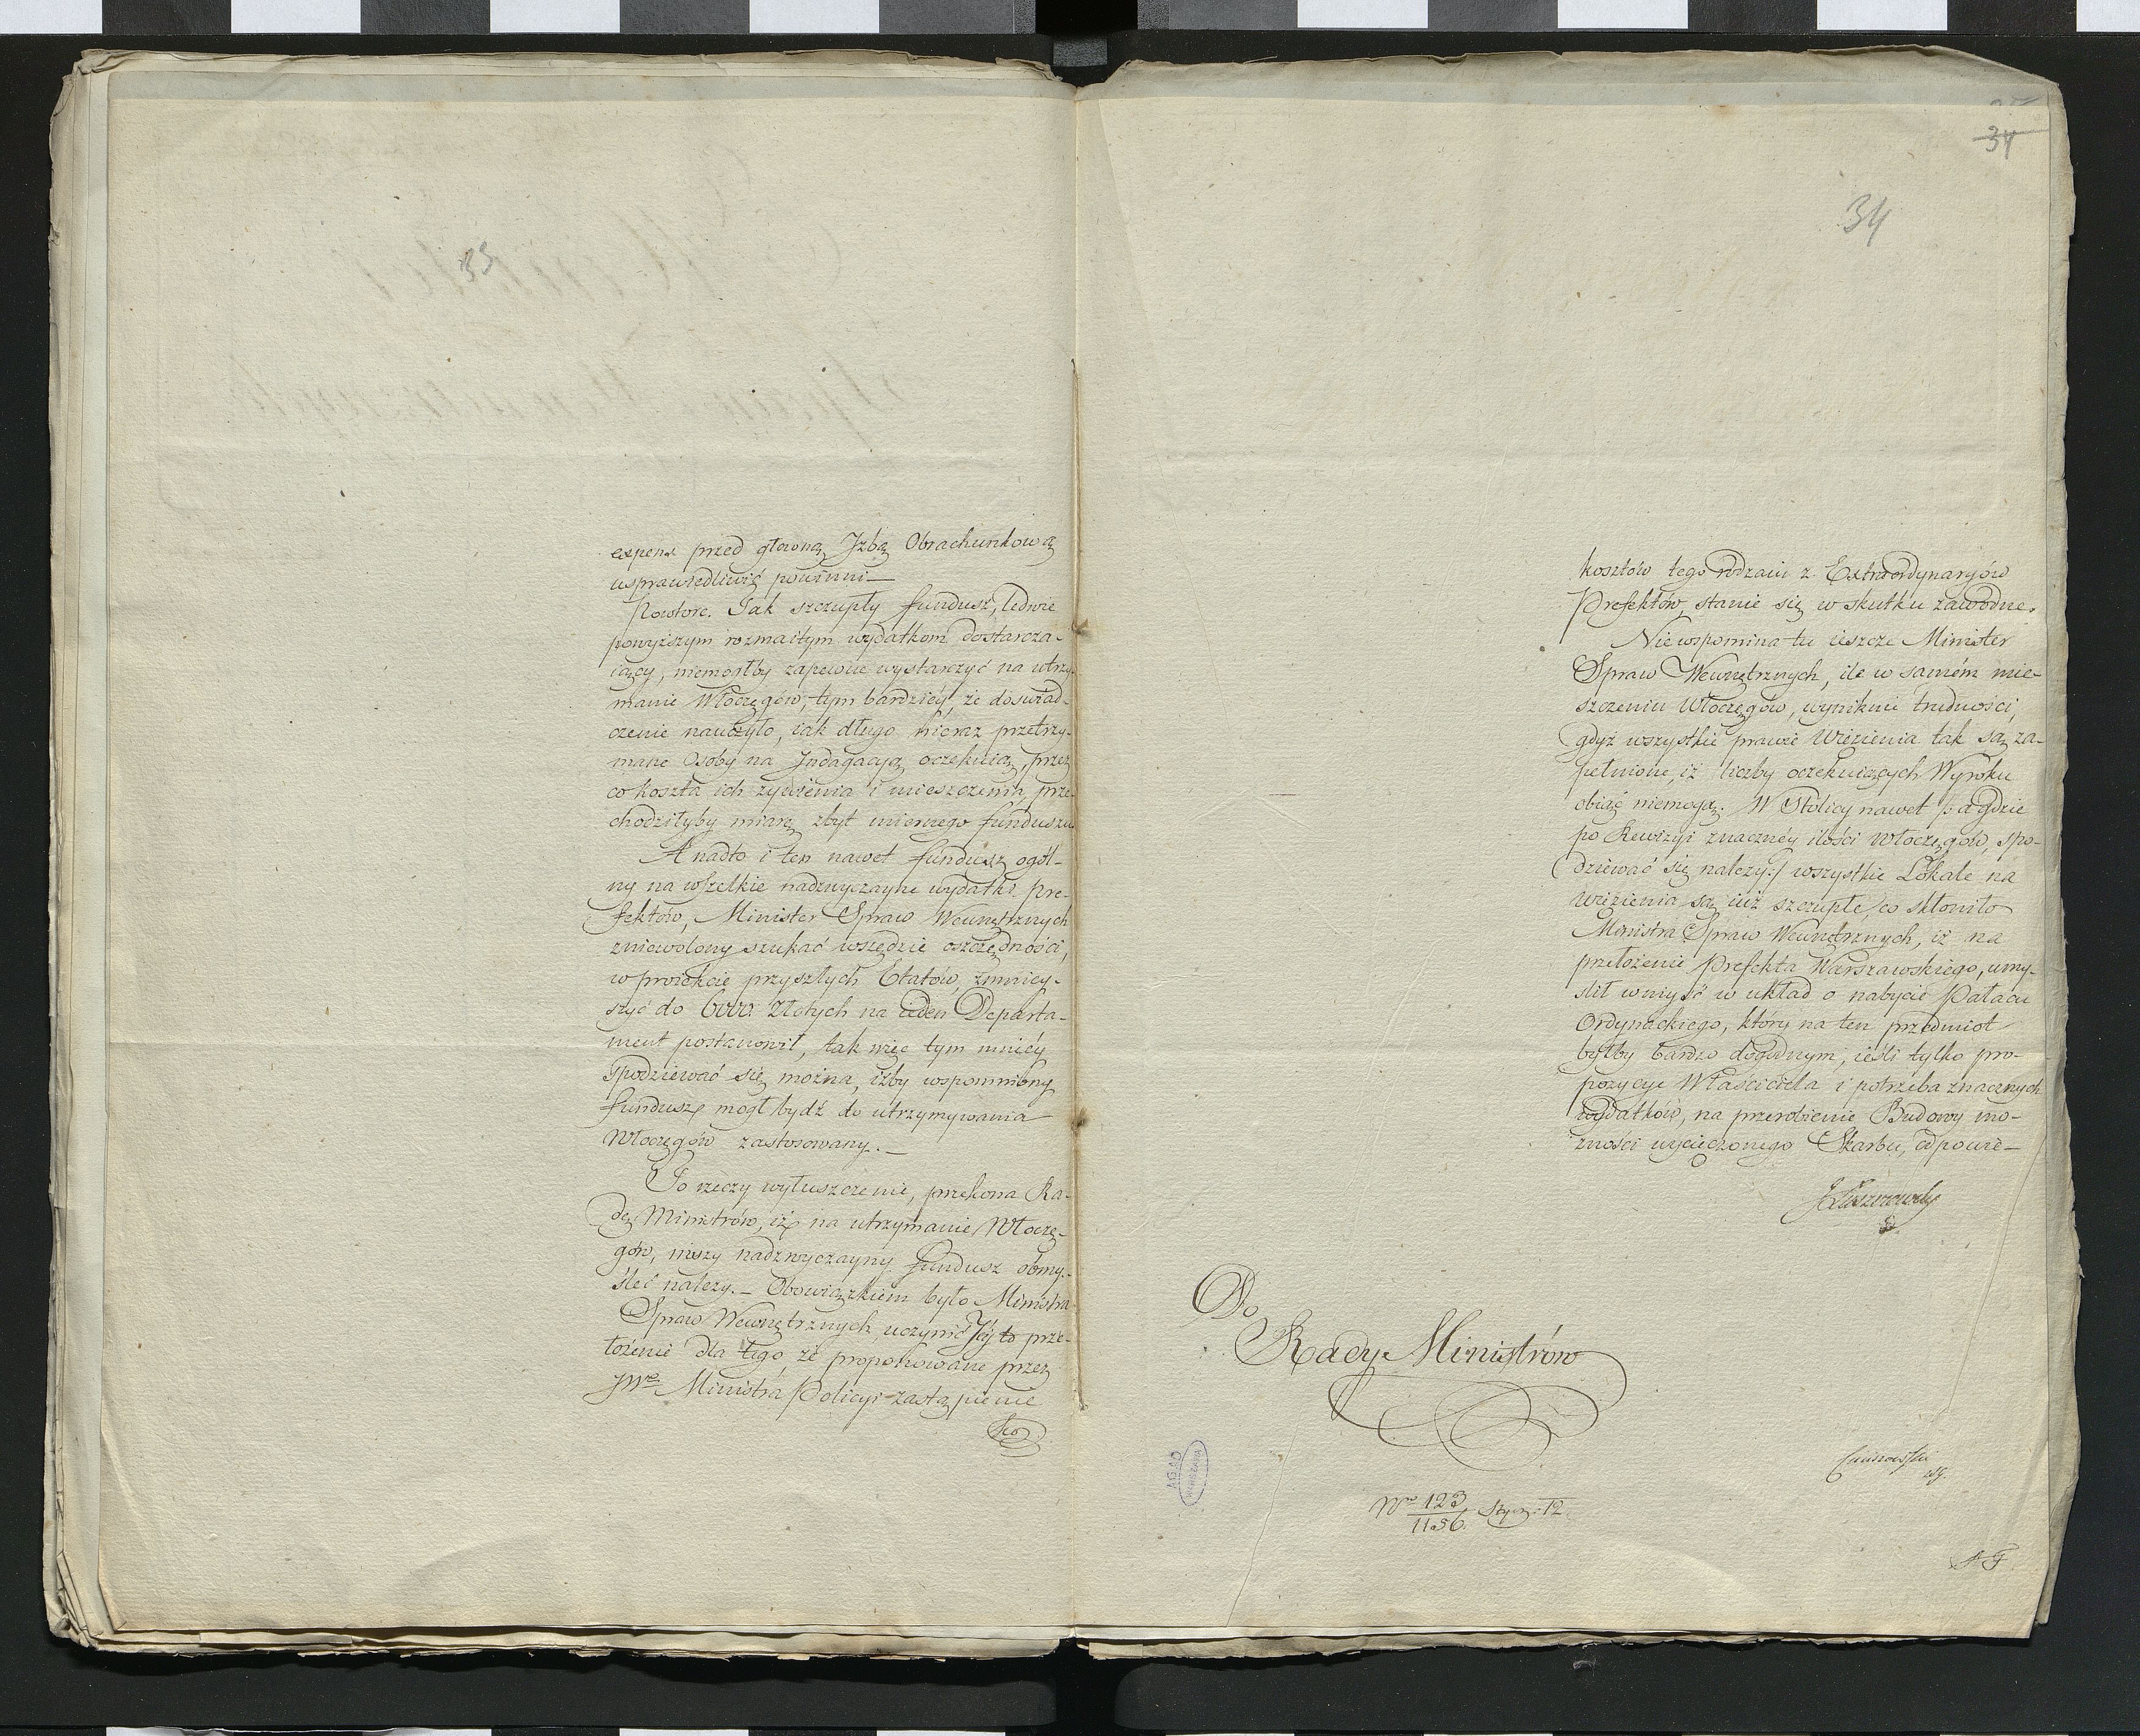 33
expens przed główną Jzbą Obrachunkową
usprawiedliwić powinni —
Powtore. Tak szczupły fundusz, ledwie
powyższym rozmaitym wydatkom dostarcza-
iący, niemogłby zapewne wystarczyć na utrzy-
manie Włoczęgów, tym bardziéy, że doswiad-
czenie nauczyło, iak długo nieraz przetrzy-
mane Osoby na Jndagacyą oczekuią, przez
co koszta ich żywienia i mieszczenia, prze-
chodziłyby miarę zbyt miernego funduszu
A nadto i ten nawet fundusz ogól-
ny na wszelkie nadzwyczayne wydatki Pre-
fektów, Minister Spraw Wewnętrznych
zniewolony szukać wszędzie oszczędności,
w proiekcie przyszłych Etatów, zmniey-
szyć do 6000. Złotych na ieden Departa-
ment postanowił, tak więc tym mniéy
spodziewać się można, iżby wspomniony
fundusz mógł bydź do utrzymywania
Włoczęgów zastosowany. —
To rzeczy wyłuszczenie, przekona Ra-
dę Ministrów, iż na utrzymanie Włoczę-
gów, inszy nadzwyczayny fundusz obmy-
śleć należy. — Obowiązkiem było Ministra
Spraw Wewnętrznych uczynić Jéy to prze-
łożenie dla tego, że proponowane przez
JWo Ministra Policyi zastąpienie
ko
34
34
kosztów tego rodzaiu z Extraordynaryów
Prefektów, stanie się w skutku zawodne.
Niewspomina tu ieszcze Minister
Spraw Wewnętrznych, ile w samém mie-
szczeniu Włoczęgów, wyniknie trudności,
gdyż wszystkie prawie Więzienia tak są za-
pełnione, iż liczby oczekuiących Wyroku
obiąć niemogą. W Stolicy nawet /: a gdzie
po Rewizyi znacznéy ilości Włoczęgów, spo-
dziewać się należy :/ wszystkie Lokale na
więzienia są iuż szczupłe, co skłoniło
Ministra Spraw Wewnętrznych, iż na
przełożenie Prefekta Warszawskiego, umy-
ślił wniyść w układ o nabycie Pałacu
Ordynackiego, który na ten przedmiot
byłby bardzo dogodnym, ieśli tylko pro-
pozycye Właściciela i potrzeba znacznych
wydatków, na przerobienie Budowy mo-
żności wycieczonego Skarbu, odpowie —
Do
Rady Ministrów
AGAD
WARSZAWA
Nro 123
1156 Stycz: 12